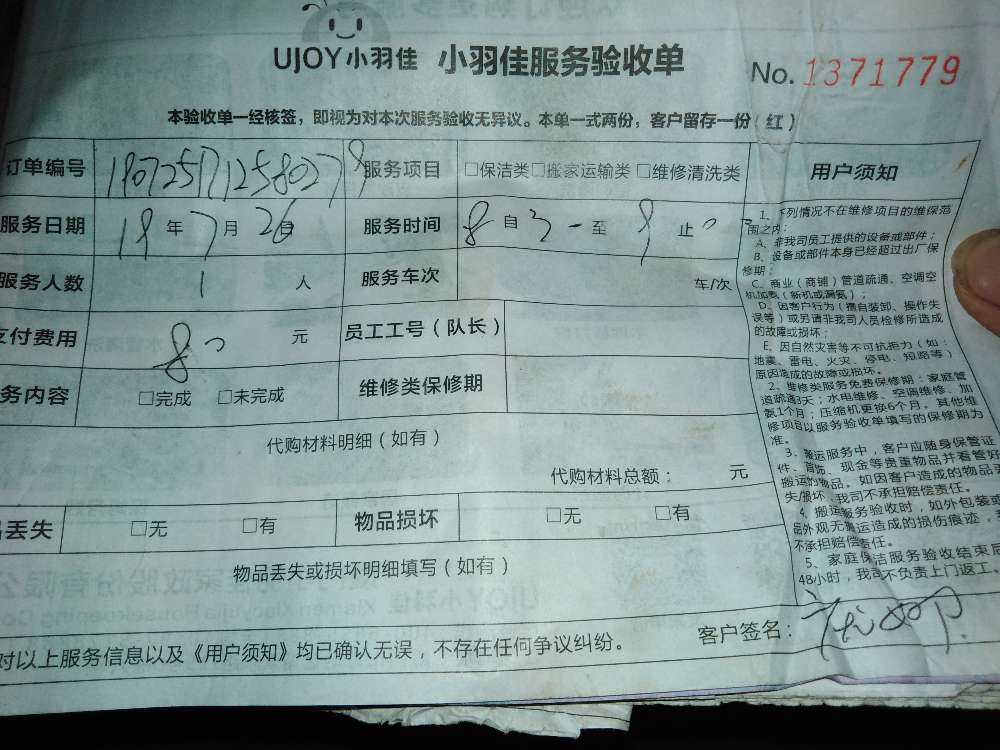 UJOY小羽佳 小羽佳服务验收单 No. 1371779
本验收单一经核签，即视为对本次服务验收无异议。本单一式两份，客户留存一份（红）
订单编号 服务项目 □保洁类□搬家运输类 □维修清洗类
服务日期 18年7月26日 服务时间
服务人数 1 人 服务车次 车/次
支付费用 80 元 员工工号（队长）
务内容 □完成 □未完成 维修类保修期
代购材料明细（如有）
代购材料总额： 元
丢失 □无 □有 物品损坏 □无 □有
物品丢失或损坏明细填写（如有）
对以上服务信息以及《用户须知》均已确认无误，不存在任何争议纠纷。 客户签名：
用户须知
1、下列情况不在维修项目的维保范
围之内：
A、非我司员工提供的设备或部件；
B、设备或部件本身已经超过出厂保
修期；
C、商业（商铺）管道疏通、空调空
机加氨（新机或漏氨）；
D、因客户行为（擅自装卸、操作失
误等）或另请非我司人员检修所造成
的故障或损坏；
E、因自然灾害等不可抗拒力（如：
地震、雷电、火灾、停电、短路等）
原因造成的故障或损坏。
2、维修类服务免费保修期：家庭管
道疏通3天；水电维修、空调维修、加
氨1个月；压缩机更换6个月。其他维
修项目以服务验收单填写的保修期为
准。
3、搬运服务中，客户应随身保管证
件、首饰、现金等贵重物品并看管好
搬运的物品。如因客户造成的物品丢
失/损坏，我司不承担赔偿责任。
4、搬运服务验收时，如外包装或
品外观无搬运造成的损伤痕迹，
不承担赔偿责任。
5、家庭保洁服务验收结束后
48小时，我司不负责上门返工。